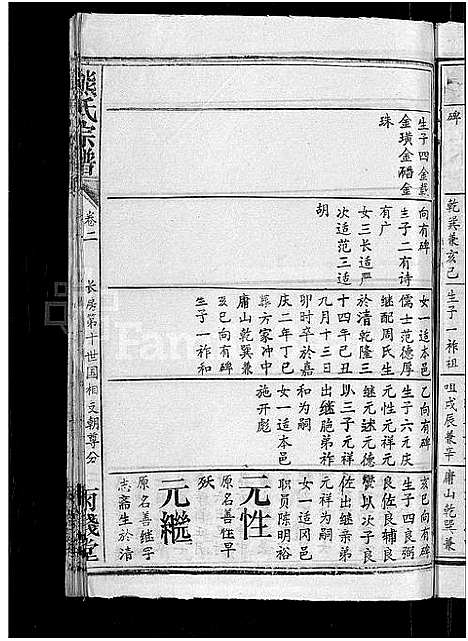 碑
乾巽兼亥巳
生子一祚祖
咀戌辰兼辛
庸山乾巽兼
熊氏宗譜
卷二
长房第十世国相支朝尊分
生子四金㦸
金璜金磻金
珠
向有碑
生子二有诗
有广
女三长适严
次适范三适
胡
女一适本邑
儒士范德厚
继配周氏生
於清乾隆三
十四年己丑
九月十三日
卯时卒於嘉
庆二年丁巳
葬方家冲中
庸山乾巽兼
亥巳向有碑
生子一祚和
乙向有碑
生子六元庆
元性元祥元
继元述元德
以三子元祥
出继胞弟祚
和为嗣
女一适本邑
施开彪
亥巳向有碑
生子四良弼
良佐良辅良
赞以次子良
佐出继亲弟
元祥为嗣
女一适冈邑
职员陈明裕
元性
原名善性早
殁
元继
原名善继字
志斋生於清